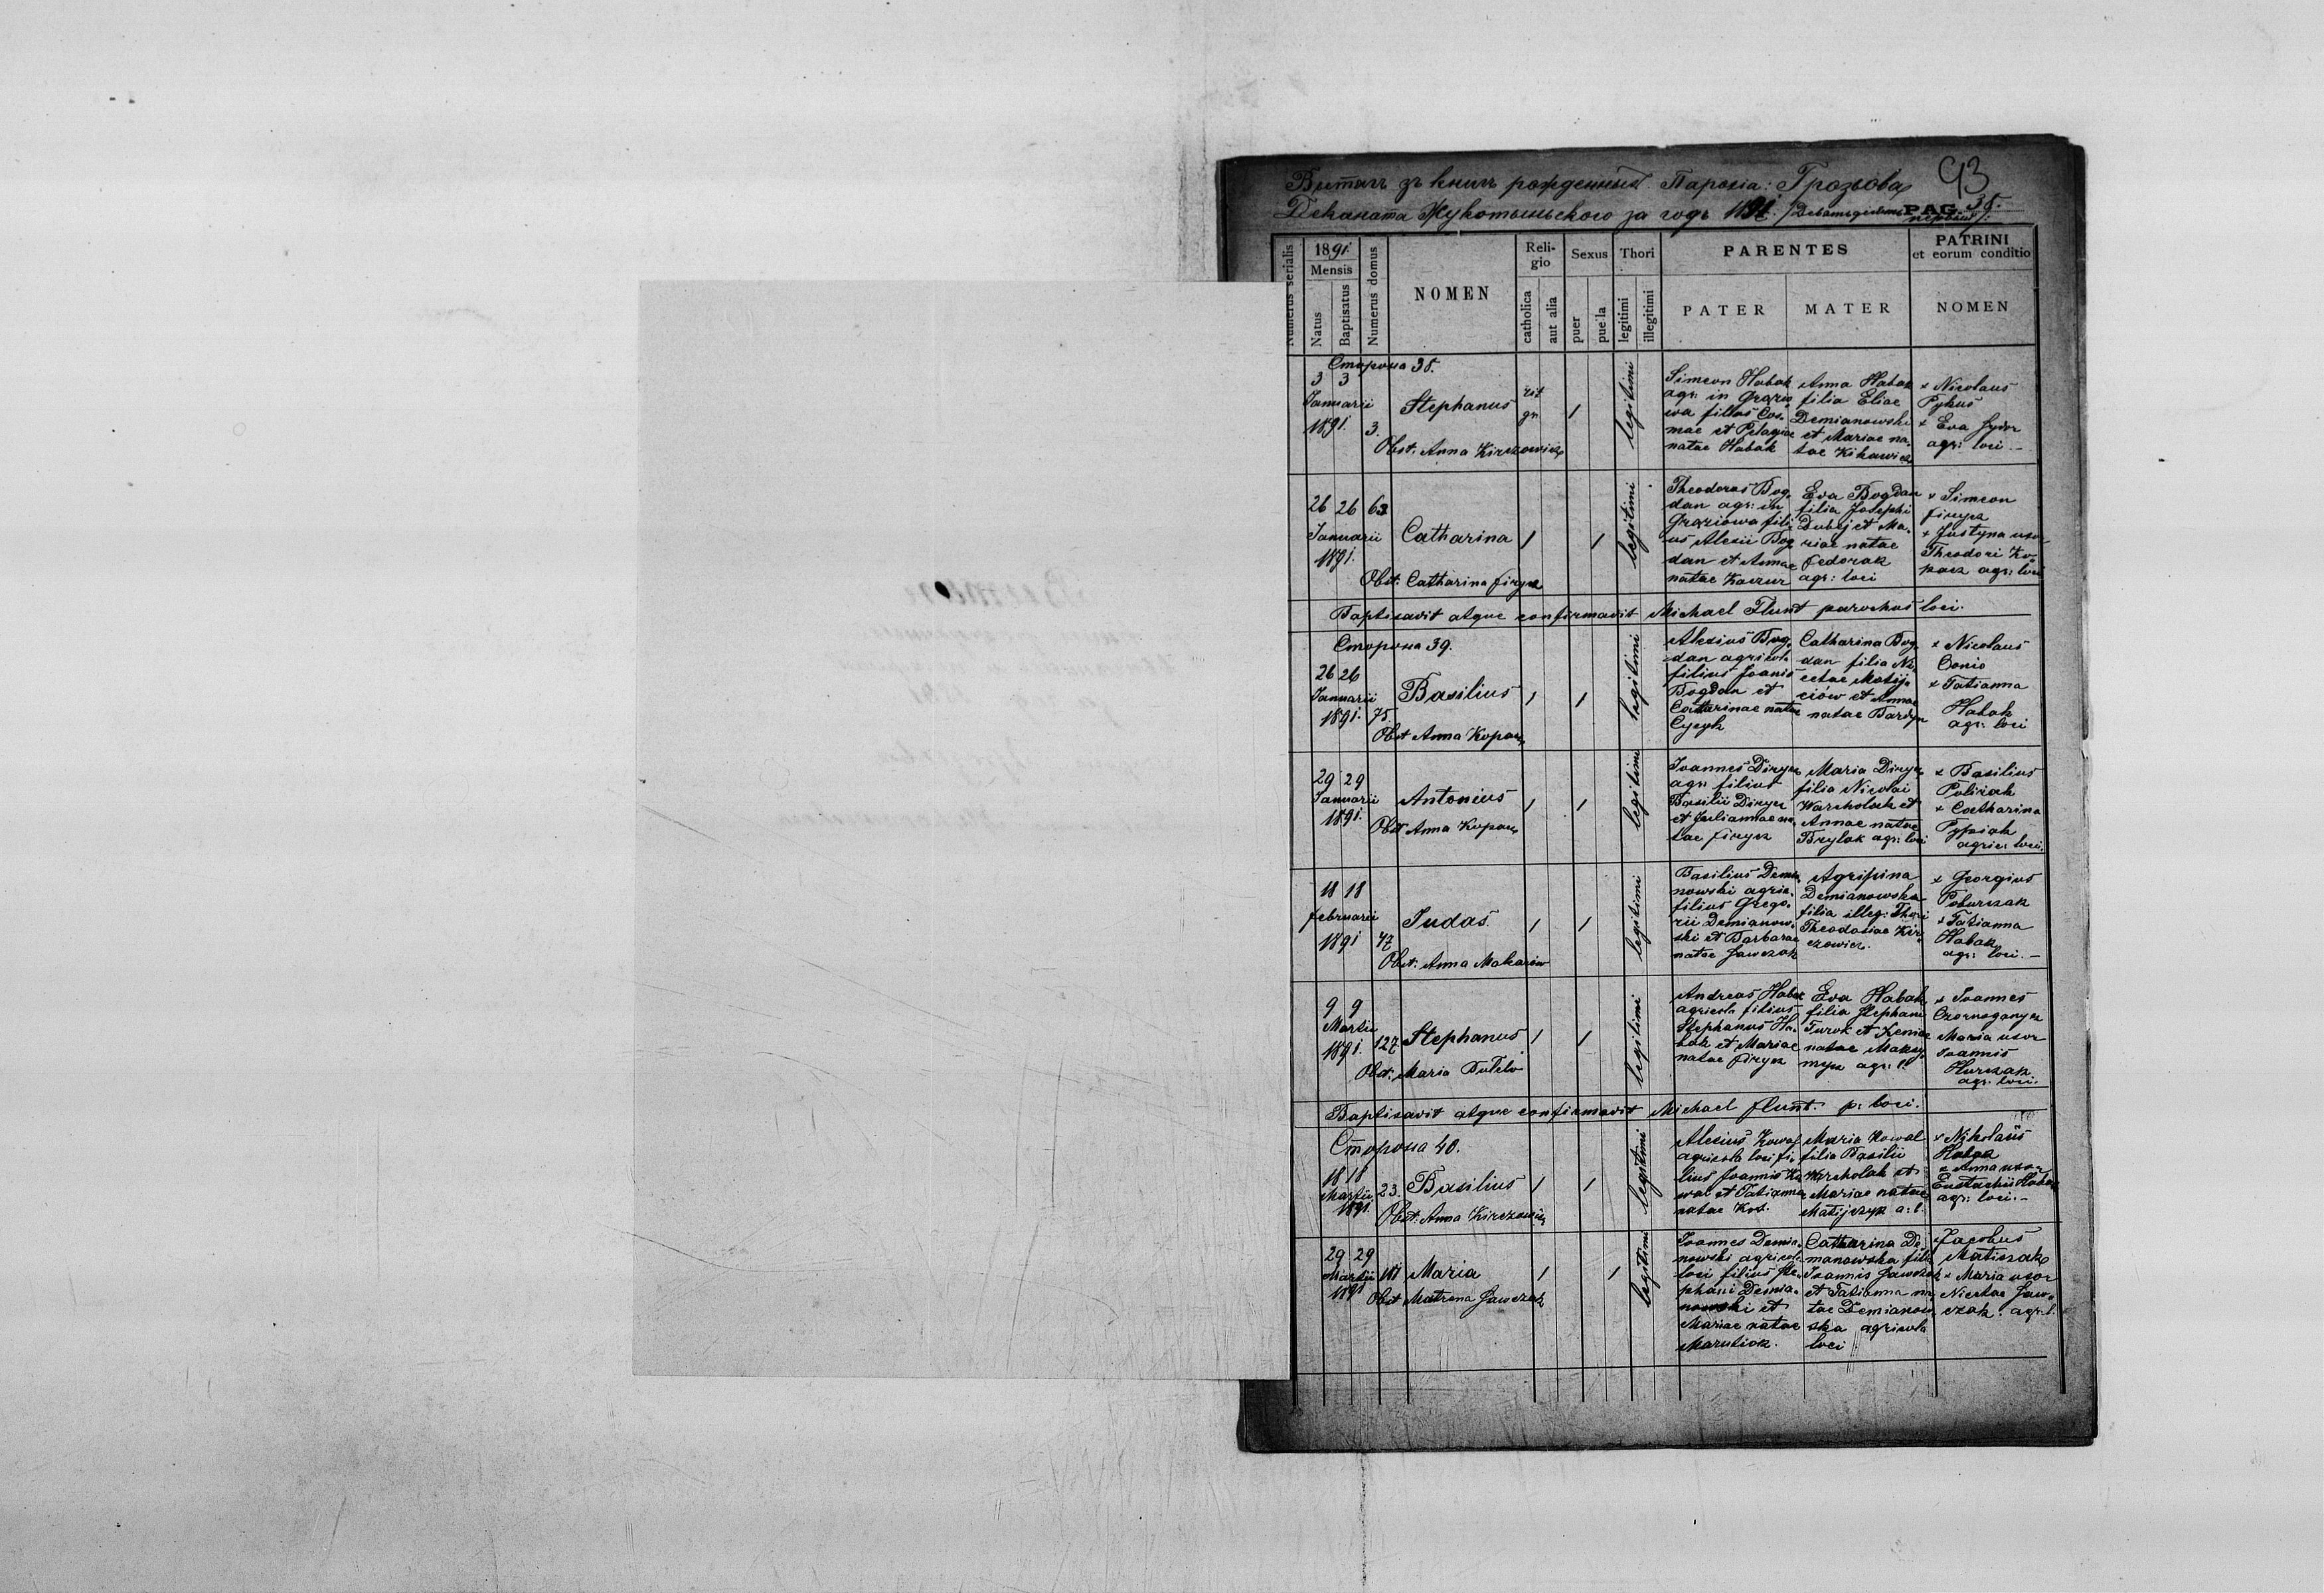 93
Вытягъ зъ книгъ рожденныхъ Парохіа: Грозьова
Деканата Жукотыньского за годъ 1891. PAG. 38.
Numerus serialis
1891
Mensis
Natus
Baptisatus
Numerus domus
NOMEN
Religio
catholica
aut alia
Sexus
puer
puella
Thori
legitimi
illegitimi
PARENTES
PATER
MATER
PATRINI
et eorum conditio
NOMEN
Сторона 38.
3 3
Januarii
1891. 3.
Stephanus
rit
gr.
1
legitimi
Obst. Anna Kirczowicz
Simeon Habak
agr: in Grozio
wa filius Cos-
mae et Pelagiae
natae Habak
Anna Habak
filia Eliae
Demianowski
et Mariae na-
tae Kikawicz
× Nicolaus
Pykus
× Eva Sydor
agr: loci.–
26 26 63
Januarii
1891.
Catharina
1
1
legitimi
Obst. Catharina Firycz
Theodorus Bog-
dan agr: in
Groziowa fili-
us Alexii Bog
dan et Annae
natae Kaczur
Eva Bogdan
filia Josephi
Dubej et Ma-
riae natae
Fedorak
agr: loci
× Simeon
Firycz
× Justyna uxor
Theodori Ko-
pacz agr: loci
Baptisavit atque confirmavit Michael Flunt parochus loci.
Сторона 39.
26 26
Januarii
1891. 75.
Basilius
1
1
legitimi
Obst Anna Kopacz
Alexius Bog-
dan agricola
filius Joanis
Bogdan et
Catharinae natae
Cycyk
Catharina Bog-
dan filia Ni-
cetae Matij-
ciów et Annae
natae
× Nicolaus
Conio
× Tatianna
Habak
agr: loci
29 29
Januarii
1891.
Antonius
1
1
legitimi
Obst Anna Kopacz
Joannes Dirycz
agr. filius
Basilii Dirycz
et Juliannae na-
tae Firycz
Maria Dirycz
filia Nicolai
Warcholak et
Annae natae
Brylak agr: loci
× Basilius
× Catharina
Pypiak
agric: loci.
18 18
Februarii
1891 47
Judas.
1
1
legitimi
Obst: Anna Makariw
Basilius Demia-
nowski agric.
filius Grego-
rii Demianow-
ski et Barbarae
natae Sawczak
Agripina
Demianowska
filia illeg: Thori
Theodosiae Kir-
czowicz.
× Georgius
Poburczak
× Tatianna
Habak
agr: loci.–
9 9
Martii
1891. 127
Stephanus
1
1
legitimi
Obst: Maria Butelo
Andreas Habak
agricola filius
Stephanus Ha-
bak et Mariae
natae Firycz
Eva Habak
filia Stephani
Turok et Xeniae
natae Maksy-
mycz agr: l.
× Joannes
Czornoganycz
Maria uxor
Joannis
Hurczak
agr. loci.
Baptisavit atque confirmavit Michael Flunt. p: loci.
Сторона 40.
18 18
Martii
1891.
23.
Basilius
1
1
legitimi
Obst: Anna Kirczowicz
Alexius Kowal
agricola loci fi-
lius Joannis Ko-
wal et Tatianna
natae Kot.
Maria Kowal
filia Basilii
Warcholak et
Mariae natae
Matijczyk a: l.
× Nikolaus
× Anna uxor
Eustachii Habak
agr: loci.–
29 29
Martii
1891
Maria
1
1
legitimi
Obst Matrona Sawczak
Joannes Demia-
nowski agricola
loci filius Ste-
phani Demia-
nowski et
Mariae natae
Catharina De-
manowska filia
Joannis Sawczak
et Tatianna na-
tae Demianow-
ska agricola
loci
× Jacobus
Maticzak
× Maria uxor
Nicetae Saw-
czak. agr: l.